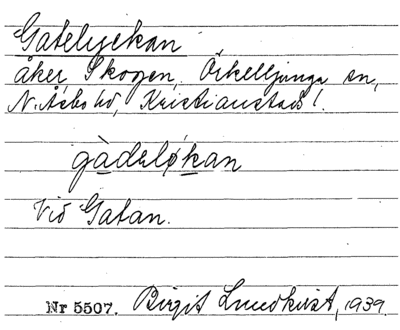 Gatelyckan
åker, Skogen, Örkelljunga sn,
N. Åsbo hd, Kristianstads l.
gàdeløkan
Vid Gatan.
Nr 5507. Birgit Lundkvist, 1939.